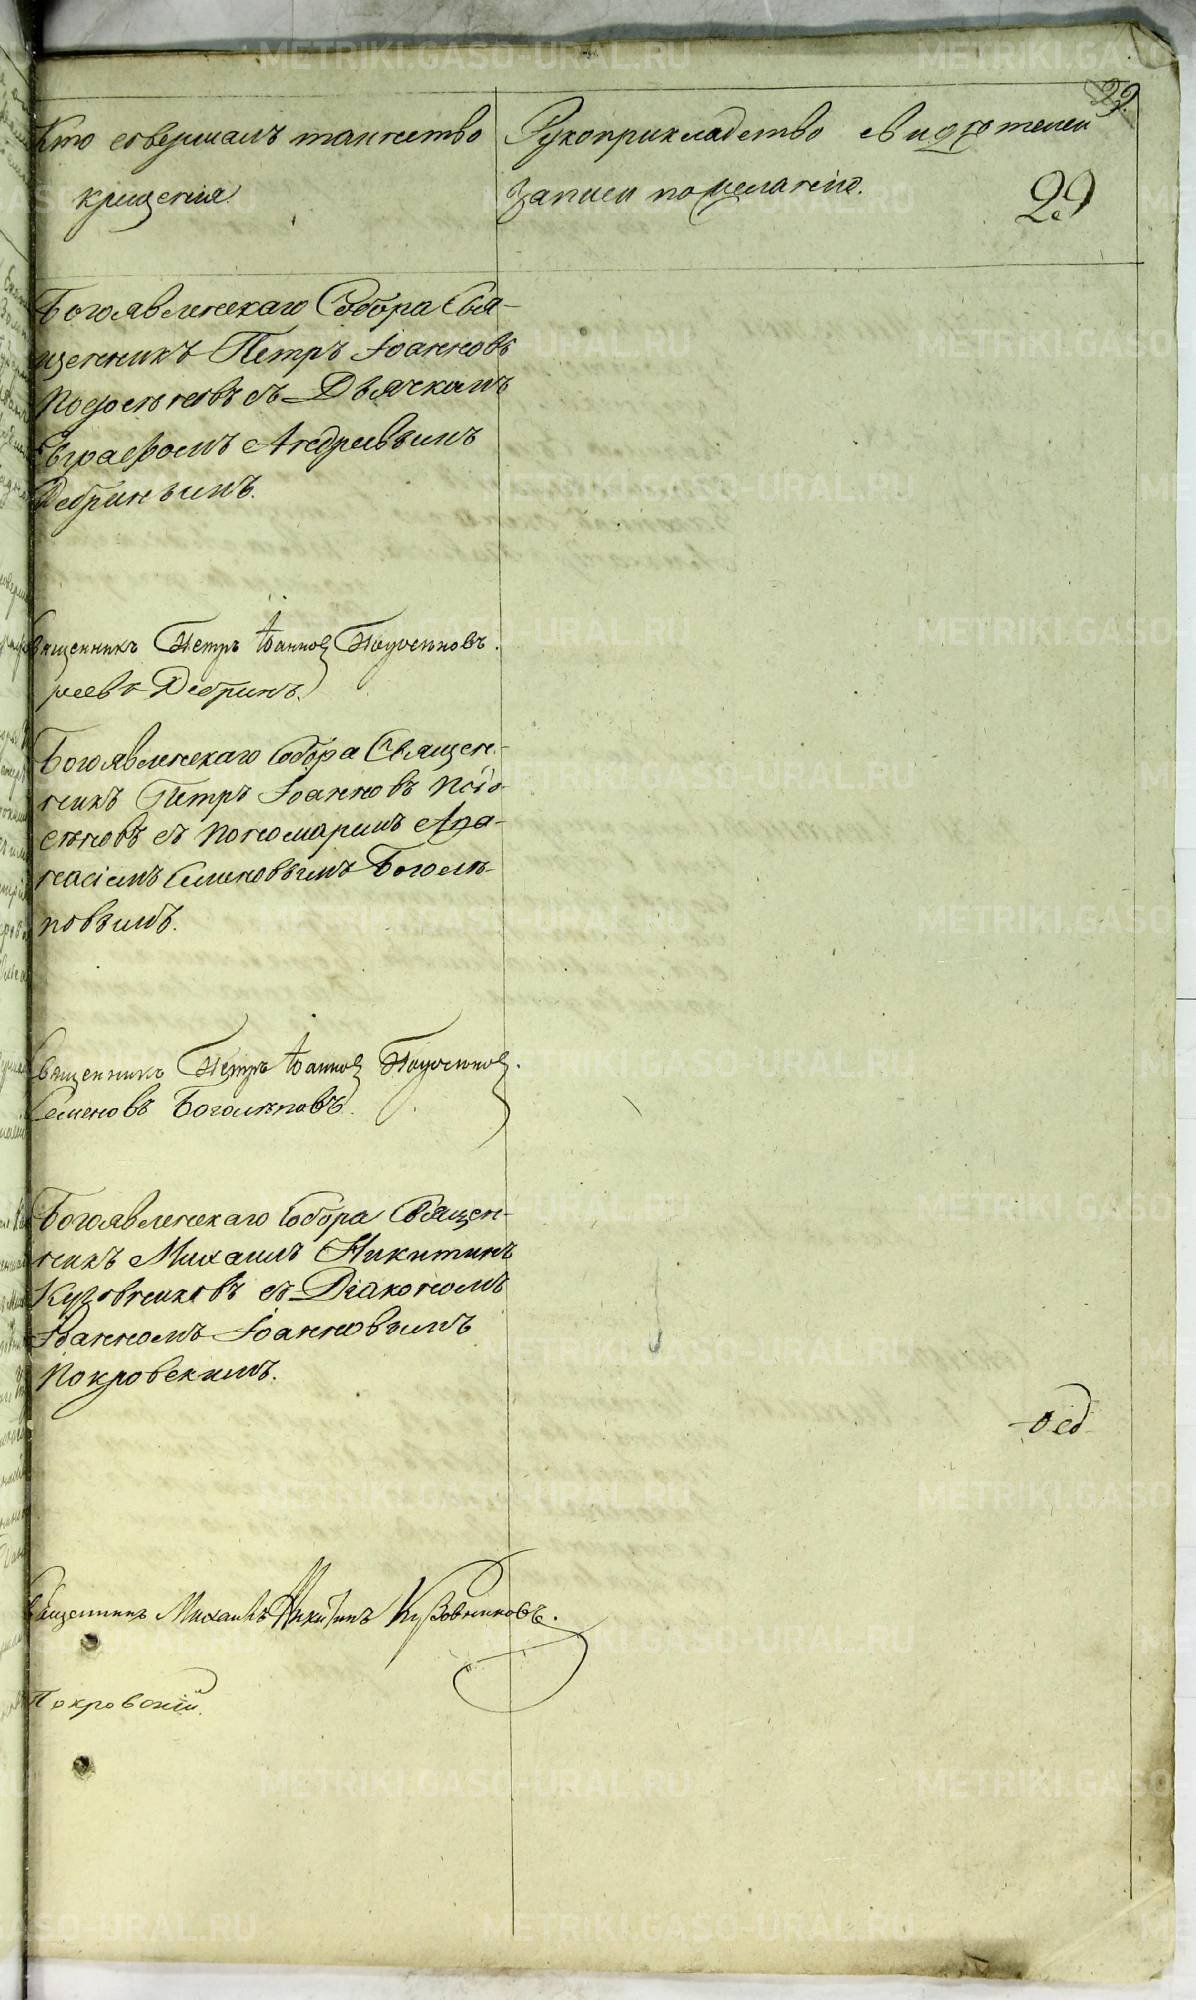 29.
Кто совершалъ таинство
крещенія
Рукоприкладство свидѣтелей
записи по желанію.
29
Богоявленскаго Собора Свя-
щенникъ Петръ Іоанновъ
Подосеновъ съ Дьячкомъ
Евграфомъ Андреевымъ
Дебринымъ.
Священникъ Петръ Іоанновъ Подосеновъ.
реевъ Дебринъ.
Богоявленскаго Собора Священ-
никъ Петръ Іоанновъ Подо-
сеновъ съ Пономаремъ Аѳа-
насіемъ Семеновымъ Боголѣ-
повымъ.
Священникъ Петръ Іоанновъ Подосеновъ.
Семеновъ Боголѣповъ.
Богоявленскаго Собора Священ-
никъ Михаилъ Никитинъ
Кузовниковъ съ Діакономъ
Іоанномъ Іоанновымъ
Покровскимъ.
Священникъ Михаилъ Никитинъ Кузовниковъ.
Покровскій.